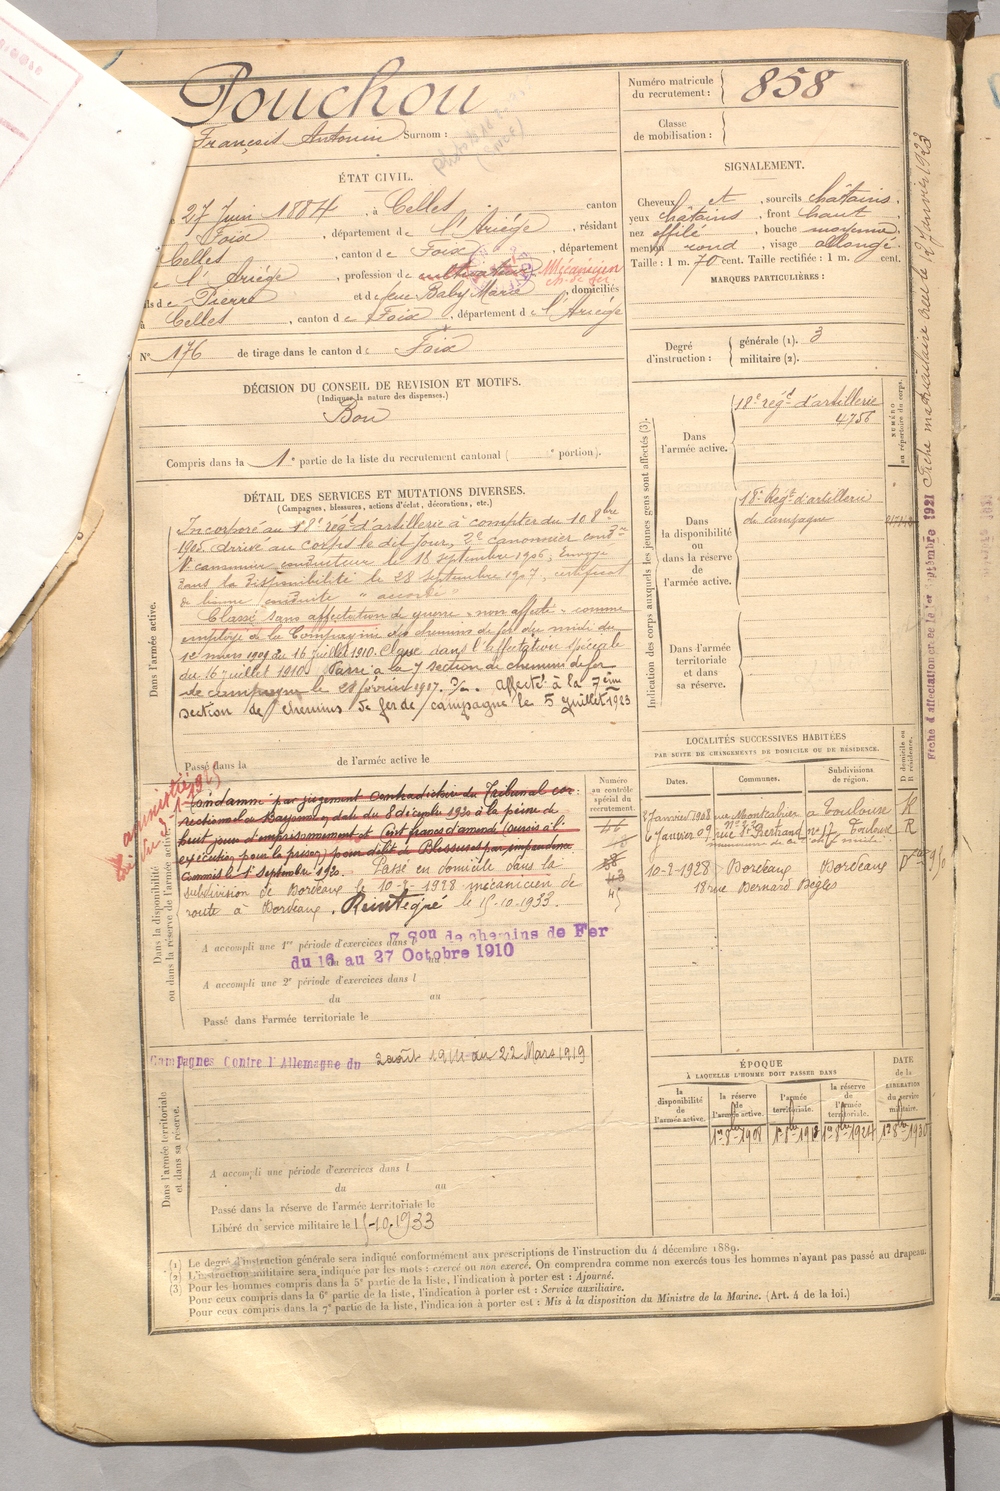 Pouchou
François Antonin Surnom :
ÉTAT CIVIL.
27 Juin 1884, à Celles canton
Foix, département de l'Ariége, résidant
Celles, canton de Foix, département
de l'Ariége, profession de cultivateur Mécanicien
ch. de fer
fils de Pierre et de feue Baby Maria, domiciliés
à Celles, canton de Foix, département de l'Ariége
N° 176 de tirage dans le canton de Foix
DÉCISION DU CONSEIL DE REVISION ET MOTIFS.
(Indiquer la nature des dispenses.)
Bon
Compris dans la 1e partie de la liste du recrutement cantonal ( e portion).
DÉTAIL DES SERVICES ET MUTATIONS DIVERSES.
(Campagnes, blessures, actions d'éclat, décorations, etc.)
Dans l'armée active.
Incorporé au 18e regt d'artillerie à compter du 10 8bre
1905. Arrivé au corps le dit jour, 2e canonnier condr
1r canonnier conducteur le 18 septembre 1906, Envoyé
dans la disponibilité le 28 septembre 1907, certificat
de bonne conduite "accordé"
Classé sans affectation de guerre "non affecté" comme
employé à la Compagnie des chemins de fer du midi du
1er mars 1909 au 16 juillet 1910. Classé dans l'affectation spéciale
du 16 juillet 1910. Passé à la 7 section de chemins de fer
de campagne le 28 février 1917. affecté à la 7ème
section de chemins de fer de campagne le 5 juillet 1923
Passé dans la de l'armée active le
Dans la disponibilité
ou dans la réserve de l'armée active.
amnistié
Condamné par jugement contradictoire du Tribunal cor-
rectionnel de Bayonne en date du 8 décembre 1920 à la peine de
huit jours d'emprisonnement et cent francs d'amende (sursis à l'
exécution pour la prison) pour délit de Blessures par imprudence
commis le 1er septembre 1920. Passé en domicile dans la
subdivision de Bordeaux le 10-2-1928 mécanicien de
route à Bordeaux. Réintégré le 15-10-1933.
Numéro
au contrôle
spécial du
recrutement.
A accompli une 1re période d'exercices dans l 7 Son de chemins de Fer
du 16 au 27 Octobre 1910
A accompli une 2e période d'exercices dans l
du au
Passé dans l'armée territoriale le
Dans l'armée territoriale
et dans sa réserve.
Campagnes Contre l'Allemagne du 2 août 1914 au 22 Mars 1919
A accompli une période d'exercices dans l
du au
Passé dans la réserve de l'armée territoriale le
Libéré du service militaire le 15-10-1933
Numéro matricule
du recrutement : 858
Classe
de mobilisation :
SIGNALEMENT.
Cheveux et, sourcils châtains,
yeux châtains, front haut
nez effilé, bouche moyenne,
menton rond, visage allongé.
Taille : 1 m. 70 cent. Taille rectifiée : 1 m. cent.
MARQUES PARTICULIÈRES :
Degré
d'instruction :
générale (1). 3
militaire (2).
Indication des corps auxquels les jeunes gens sont affectés (3).
NUMÉRO
au répertoire du corps.
Dans
l'armée active.
18e regt d'artillerie
4756
Dans
la disponibilité
ou
dans la réserve
de
l'armée active.
18e Regt d'artillerie
de campagne
Dans l'armée
territoriale
et dans
sa réserve.
LOCALITÉS SUCCESSIVES HABITÉES
PAR SUITE DE CHANGEMENTS DE DOMICILE OU DE RÉSIDENCE.
Dates. Communes. Subdivisions
de région. D domicile ou
R résidence.
2 Janvier 1908 rue Montcabrier à Toulouse R
6 Janvier 09 rue St Bertrand no 17 Toulouse R
10-2-1928 Bordeaux Bordeaux D
18 rue Bernard Bègles
ÉPOQUE
À LAQUELLE L'HOMME DOIT PASSER DANS
la
disponibilité
de
l'armée active.
la réserve
de
l'armée active.
l'armée
territoriale.
la réserve
de
l'armée
territoriale.
DATE
de la
LIBÉRATION
du service
militaire.
1er 8bre 1908 1er 8bre 1918 1er 8bre 1924 1er 8bre 1930
Fiche d'affectation créée le 1er Septembre 1921 Fiche matriculaire créée le 12 Janvier 1923
(1) Le degré d'instruction générale sera indiqué conformément aux prescriptions de l'instruction du 4 décembre 1889.
(2) L'instruction militaire sera indiquée par les mots : exercé ou non exercé. On comprendra comme non exercés tous les hommes n'ayant pas passé au drapeau.
(3) Pour les hommes compris dans la 5e partie de la liste, l'indication à porter est : Ajourné.
Pour ceux compris dans la 6e partie de la liste, l'indication à porter est : Service auxiliaire.
Pour ceux compris dans la 7e partie de la liste, l'indication à porter est : Mis à la disposition du Ministre de la Marine. (Art. 4 de la loi.)